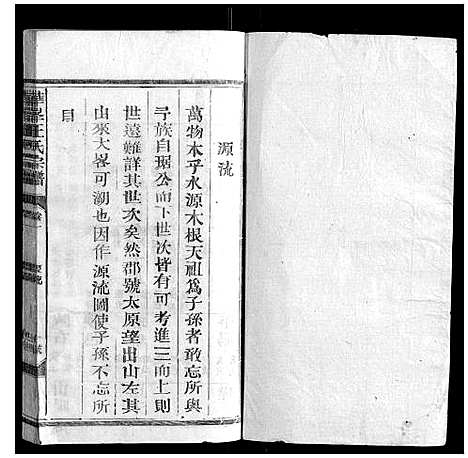 源流
萬物本乎水源木根天祖爲子孫者敢忘所與
予族自琚公而下世次皆有可考進三而上則
世遠難詳其世次矣然郡號太原望出山左其
由來大畧可溯也因作源流圖使子孫不忘所
自
王氏宗譜
源流